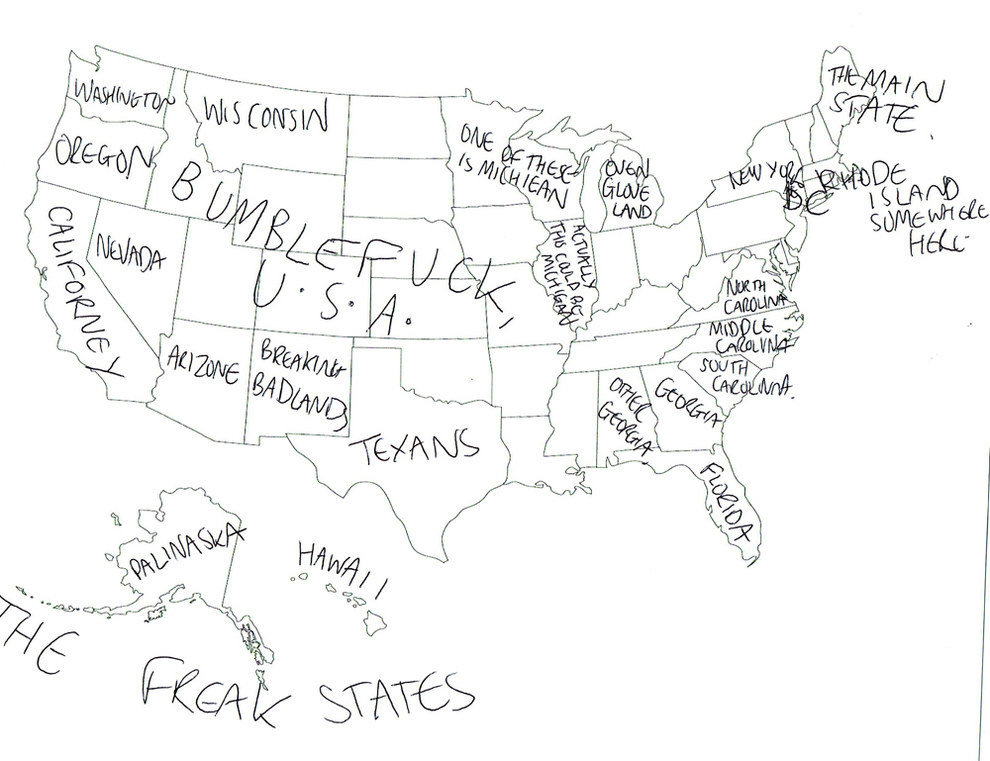 WASHINGTON
OREGON
CALIFORNEY
NEVADA
WISCONSIN
BUMBLEFUCK,
U.S.A.
ARIZONE
BREAKING
BADLANDS
TEXANS
ONE OF THESE
IS MICHIGAN
OVEN
GLOVE
LAND
ACTUALLY
THIS COULD BE
MICHIGAN
THE MAIN
STATE.
NEW YORK
DC
RHODE
ISLAND
SOMEWHERE
HERE
NORTH
CAROLINA
MIDDLE
CAROLINA
SOUTH
CAROLINNA.
GEORGIA
OTHER
GEORGIA
FLORIDA
PALINASKA
HAWAII
THE
FREAK STATES